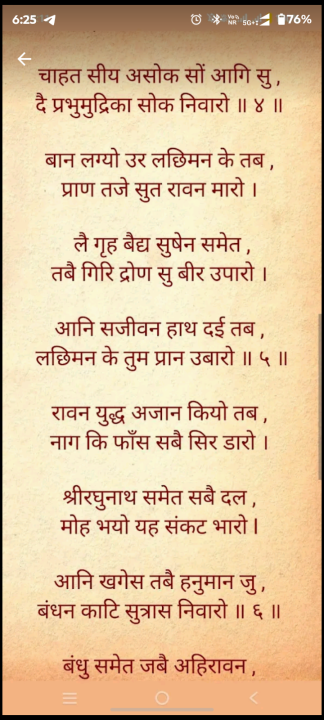 6:25
Vo))
NR
5G+
76%
चाहत सीय असोक सों आगि सु ,
दै प्रभुमुद्रिका सोक निवारो ॥ ४ ॥
बान लग्यो उर लछिमन के तब ,
प्राण तजे सुत रावन मारो ।
लै गृह बैद्य सुषेन समेत ,
तबै गिरि द्रोण सु बीर उपारो ।
आनि सजीवन हाथ दई तब ,
लछिमन के तुम प्रान उबारो ॥ ५ ॥
रावन युद्ध अजान कियो तब ,
नाग कि फाँस सबै सिर डारो ।
श्रीरघुनाथ समेत सबै दल ,
मोह भयो यह संकट भारो I
आनि खगेस तबै हनुमान जु ,
बंधन काटि सुत्रास निवारो ॥ ६ ॥
बंधु समेत जबै अहिरावन ,